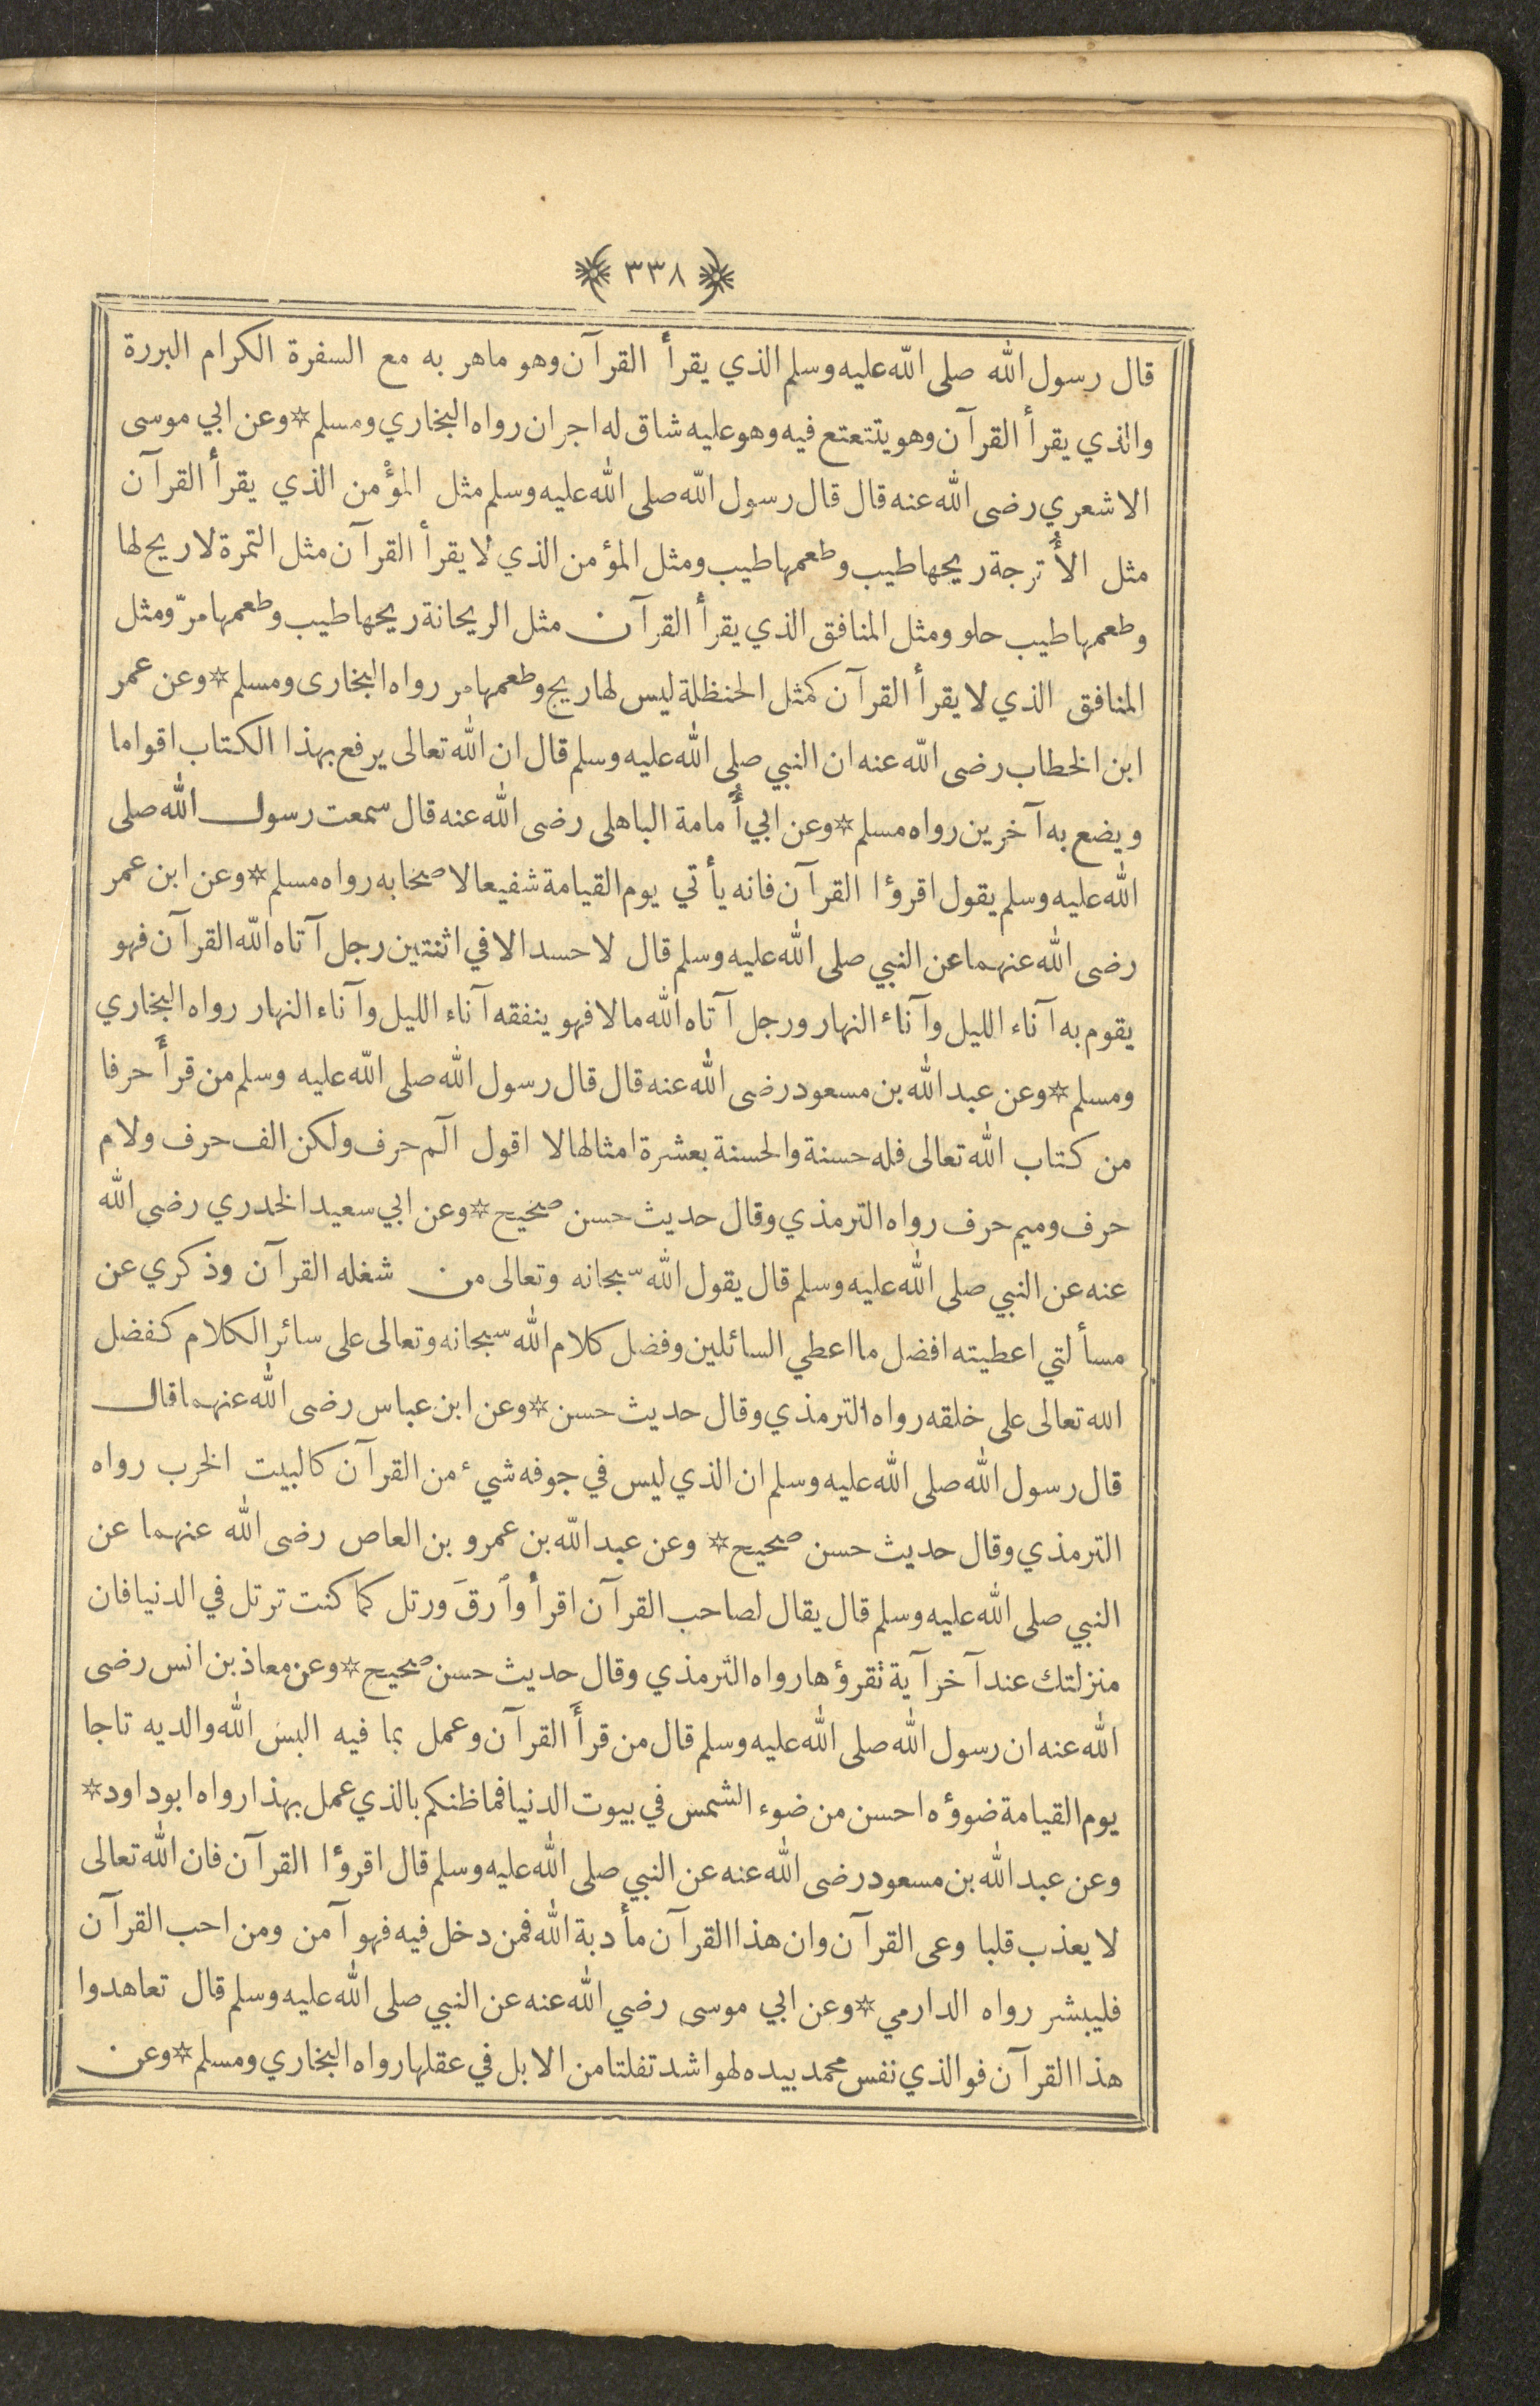 ﴿ ٣٣٨ ﴾
قال رسول الله صلى الله عليه وسلم الذي يقرأ القرآن وهو ماهر به مع السفرة الكرام البررة
والذي يقرأ القرآن وهو يتتعتع فيه وهو عليه شاق له اجران رواه البخاري ومسلم * وعن ابي موسى
الاشعري رضى الله عنه قال قال رسول الله صلى الله عليه وسلم مثل المؤْمن الذي يقرأ القرآن
مثل الأُترجة ريحها طيب وطعمها طيب ومثل المؤمن الذي لا يقرأ القرآن مثل التمرة لا ريح لها
وطعمها طيب حلو ومثل المنافق الذي يقرأ القرآن مثل الريحانة ريحها طيب وطعمها مرّ ومثل
المنافق الذي لا يقرأ القرآن كمثل الحنظلة ليس لها ريح وطعمها مر رواه البخارى ومسلم * وعن عمر
ابن الخطاب رضى الله عنه ان النبي صلى الله عليه وسلم قال ان الله تعالى يرفع بهذا الكتاب اقواما
ويضع به آخرين رواه مسلم * وعن ابي أُمامة الباهلى رضى الله عنه قال سمعت رسول الله صلى
الله عليه وسلم يقول اقرؤا القرآن فانه يأتي يوم القيامة شفيعا لاصحابه رواه مسلم * وعن ابن عمر
رضى الله عنهما عن النبي صلى الله عليه وسلم قال لا حسد الا في اثنتين رجل آتاه الله القرآن فهو
يقوم به آناء الليل وآناء النهار ورجل آتاه الله مالا فهو ينفقه آناء الليل وآناء النهار رواه البخاري
ومسلم * وعن عبد الله بن مسعود رضى الله عنه قال قال رسول الله صلى الله عليه وسلم من قرأَ حرفا
من كتاب الله تعالى فله حسنة والحسنة بعشرة امثالها لا اقول الٓم حرف ولكن الف حرف ولام
حرف وميم حرف رواه الترمذي وقال حديث حسن صحيح * وعن ابي سعيد الخدري رضى الله
عنه عن النبي صلى الله عليه وسلم قال يقول الله سبحانه وتعالى من شغله القرآن وذكري عن
مسألتي اعطيته افضل ما اعطي السائلين وفضل كلام الله سبحانه وتعالى على سائر الكلام كفضل
الله تعالى على خلقه رواه الترمذي وقال حديث حسن * وعن ابن عباس رضى الله عنهما قال
قال رسول الله صلى الله عليه وسلم ان الذي ليس في جوفه شيء من القرآن كالبيت الخرب رواه
الترمذي وقال حديث حسن صحيح * وعن عبد الله بن عمرو بن العاص رضى الله عنهما عن
النبي صلى الله عليه وسلم قال يقال لصاحب القرآن اقرأ وٱرقَ ورتل كما كنت ترتل في الدنيا فان
منزلتك عند آخر آية تقرؤها رواه الترمذي وقال حديث حسن صحيح * وعن معاذ بن انس رضى
الله عنه ان رسول الله صلى الله عليه وسلم قال من قرأَ القرآن وعمل بما فيه البس الله والديه تاجا
يوم القيامة ضوؤه احسن من ضوء الشمس في بيوت الدنيا فما ظنكم بالذي عمل بهذا رواه ابو داود *
وعن عبد الله بن مسعود رضى الله عنه عن النبي صلى الله عليه وسلم قال اقرؤا القرآن فان الله تعالى
لا يعذب قلبا وعى القرآن وان هذا القرآن مأدبة الله فمن دخل فيه فهو آمن ومن احب القرآن
فليبشر رواه الدارمي * وعن ابي موسى رضي الله عنه عن النبي صلى الله عليه وسلم قال تعاهدوا
هذا القرآن فوالذي نفس محمد بيده لهو اشد تفلتا من الابل في عقلها رواه البخاري ومسلم * وعن